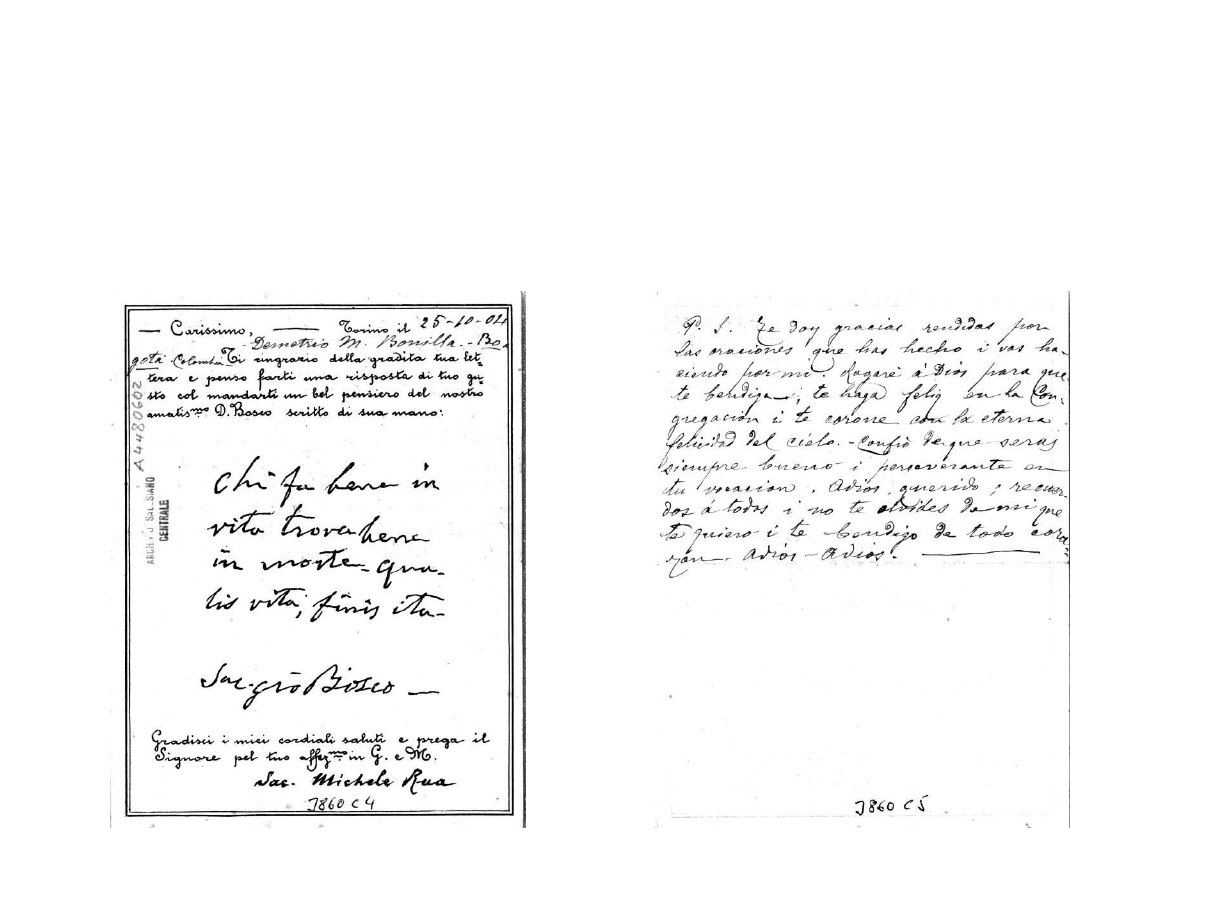 — Carissimo, — Torino il 25-10-04
Demetrio M. Bonilla. - Bo-
gotá Colombia Ti ringrazio della gradita tua let=
tera e penso farti una risposta di tuo gu=
sto col mandarti un bel pensiero del nostro
amatis.mo D. Bosco scritto di sua mano:
A4480602
ARCHIVIO SALESIANO
CENTRALE
Chi fa bene in
vita trova bene
in morte - qua-
lis vita, finis ita -
Sac. Gio Bosco —
Gradisci i miei cordiali saluti e prega il
Signore pel tuo affez.mo in G. e M.
Sac. Michele Rua
J860 C4
P. S. Te doy gracias rendidas por
las oraciones que has hecho i vas ha-
ciendo por mi. Rogaré á Dios para que
te bendiga, te haga feliz en la Con-
gregacion i te corone con la eterna
felicidad del cielo. - Confio de que serás
siempre bueno i perseverante en
tu vocacion. Adios, querido; recuer-
dos á todos i no te olvides de mi que
te quiero i te bendigo de todo cora=
zón. Adios - Adios. —
J860 C5